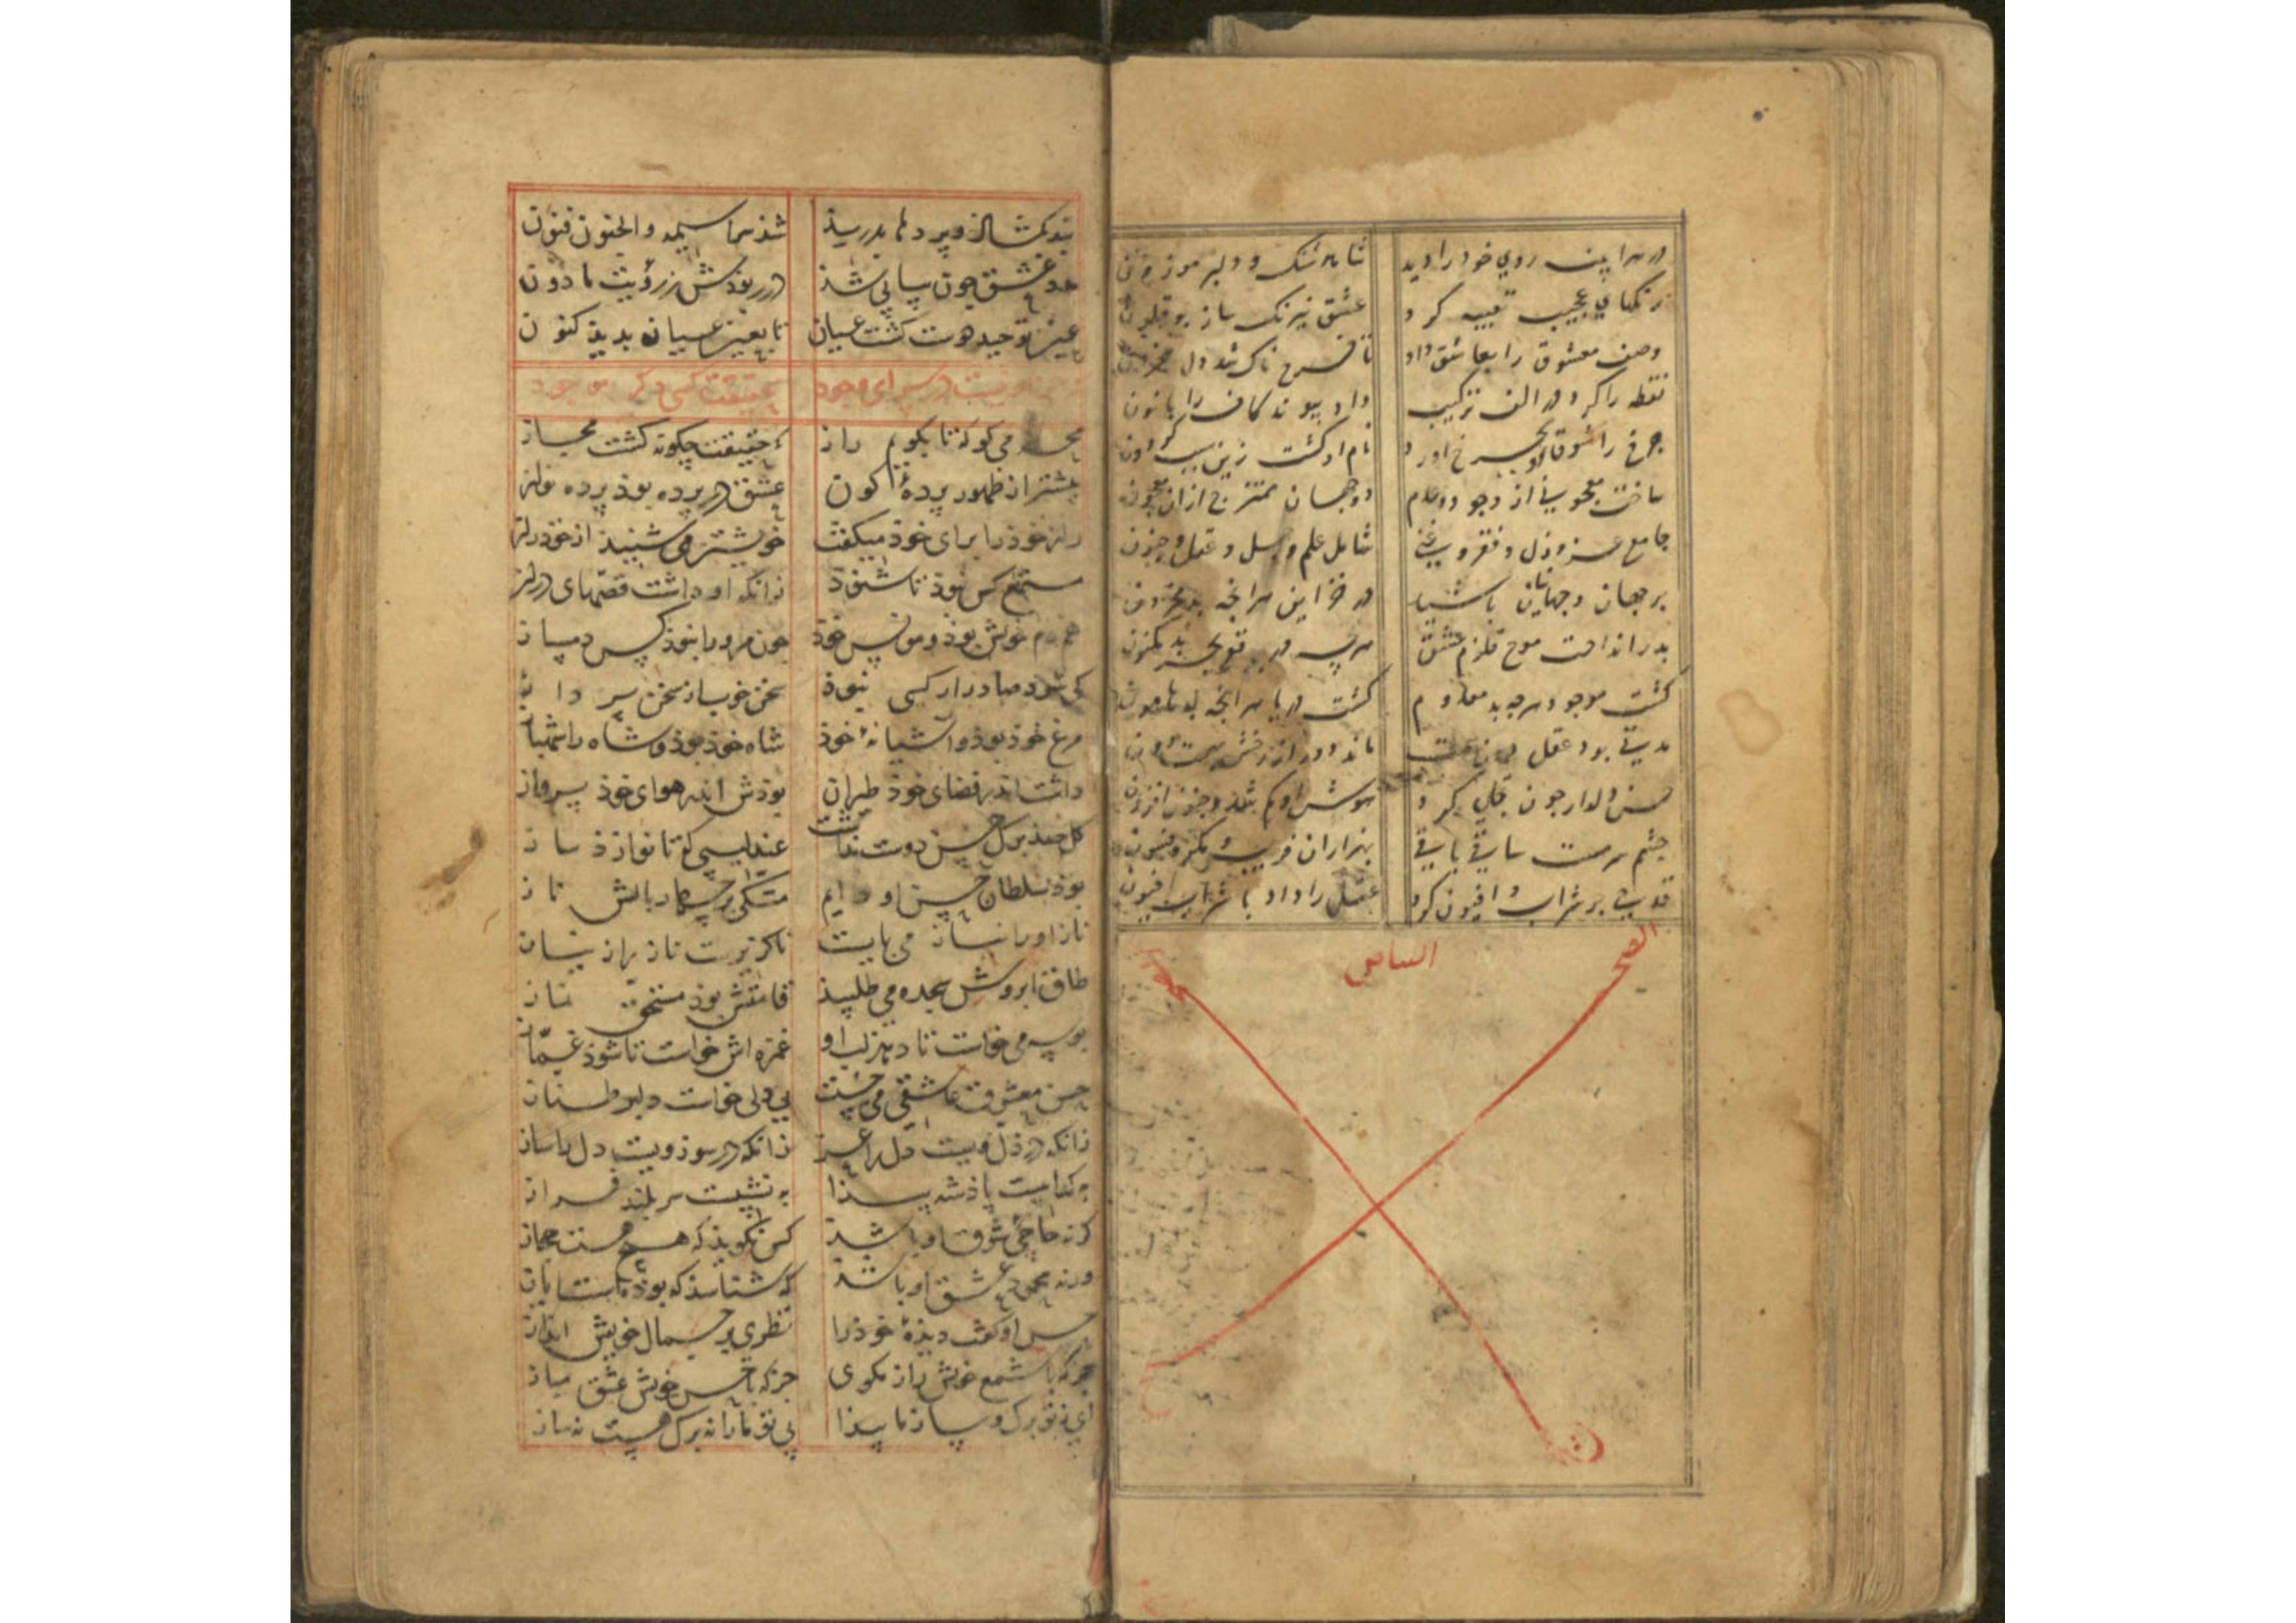 در هر اینه روی خود را دید شاهد شنک و دلبر موزون
رنکهای عجیب تعبیه کرد عشق نیرنک ساز بوقلمون
وصف معشوق را بعاشق داد تا فرح ناک شد دل محزون
نقطه را کرد در الف ترکیب داد پیوند کاف را با نون
چرخ را شوق او بچرخ اورد نام او کشت زین سبب کردون
ساخت معجونی از وجود و عدم دو جهان ممتزج ازان معجون
جامع عز و ذل و فقر و غنی شامل علم و جهل و عقل و جنون
بر جهان و جهانیان باشید در خزاین هر انچه بد مخزون
بدر انداخت موج قلزم عشق هرچه در قعر بحر بد مکنون
کشت موجود هرچه بد معدوم کشت دریا هر انچه بد هامون
مدتی بود عقل
حسن دلدار چون تجلی کرد هوش او کم شد و جنون افزون
چشم سرمست ساقی باقی بهزاران فریب و مکر و فسون
قدحی بر شراب و افیون کرد عقل را داد با شراب افیون
الساهی
بند بکشاد و پردها بدرید شد سراسیمه والجنون فنون
چو عشق چون سپاپی شد در ربودش ز رؤیت مادون
عین توحید هوت کشت عیان تا بعین عیان بدید کنون
نیست در سرای وجود بحقیقت کسی دکر موجود
می کو که تا بکویم راز که حقیقت چکونه کشت مجاز
پیشتر از ظهور پردۀ کون عشق در پرده بود پرده نواز
راز خود را برای خود میکفت خویشتن می شنید از خود راز
مستمع کس نبود تا شنود زانکه او داشت قصهای دراز
همدم خویش بود و مونس خود چون مرورا نبود کس دمساز
کسی نبود سخن خوب
مرغ خود بود و آشیانۀ خود شاه خود بود و شاه را شهباز
داشت اندر فضای خود طیران بودش اندر هوای خود پرواز
کل حسن دوست نداشت عندلیبی کو تا نوازد ساز
بود سلطان حسن او دایم متکی بر چهار بالش ناز
ناز او را نیاز می بایست ناکزیرست ناز را ز نیاز
طاق ابروش سجده می طلبید قامتش بود مستحق نماز
بوسه می خواست تا دهد لب او غمزه اش خواست تا شود غماز
حسن معشوق عاشقی می جست بی دلی خواست دلبر طناز
زانکه در ذل ویست دل را عز زانکه در سوز ویست دل را ساز
به کدایست پادشه پیدا به نشیبست سر بلند فراز
کر نه حاجی شوق او باشد کس نکوید که هست حجاز
ور نه محمود عشق او باشد که شناسد که بود ایاز
حسن او دیدۀ خود را نظری بر جمال خویش انداز
جز که با شمع خویش راز مکوی جز که با حسن خویش عشق مباز
ای ز تو برک و ساز ما پیدا بی تو ما را نه برک هست نه ساز